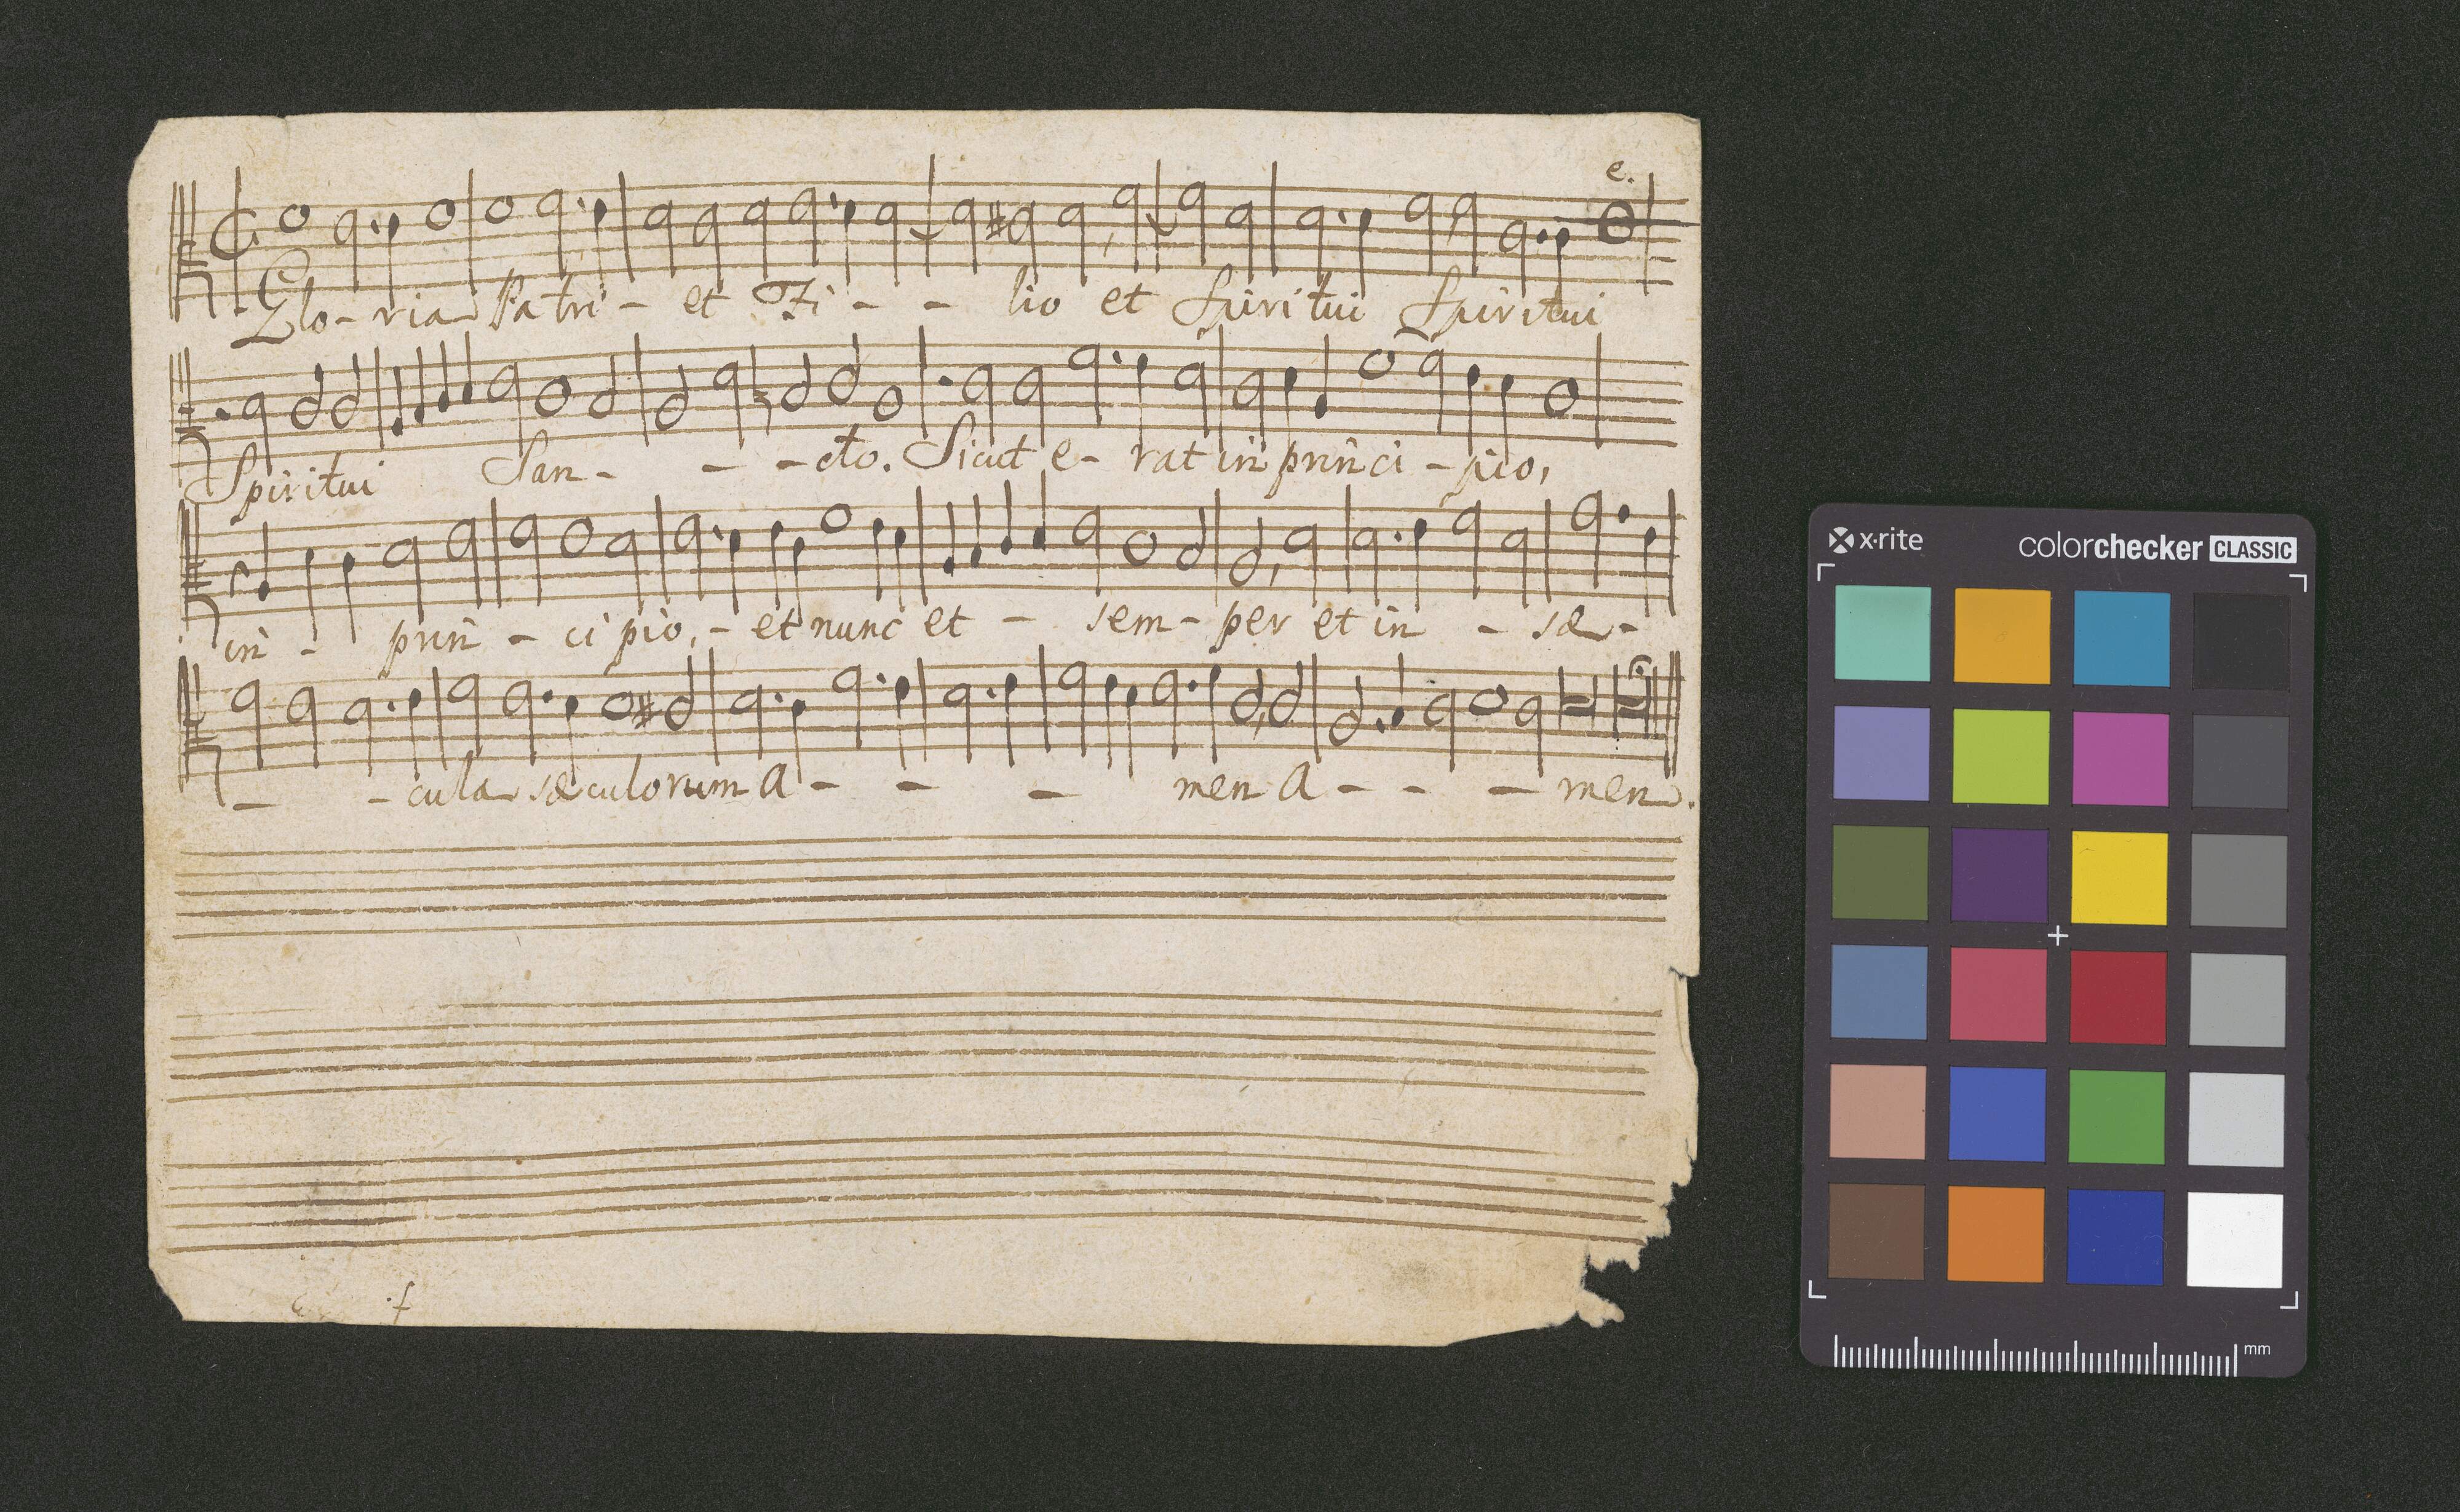 e.
Glo - ria Patri - et Fi - - lio et Spiritui Spiritui
Spiritui San - - - cto. Sicut e - rat in princi - pio,
in - prin - ci pio, - et nunc et - sem - per et in - sæ -
- - cula sæculorum A - - - men A - - - men.
f.
x-rite colorchecker CLASSIC
mm